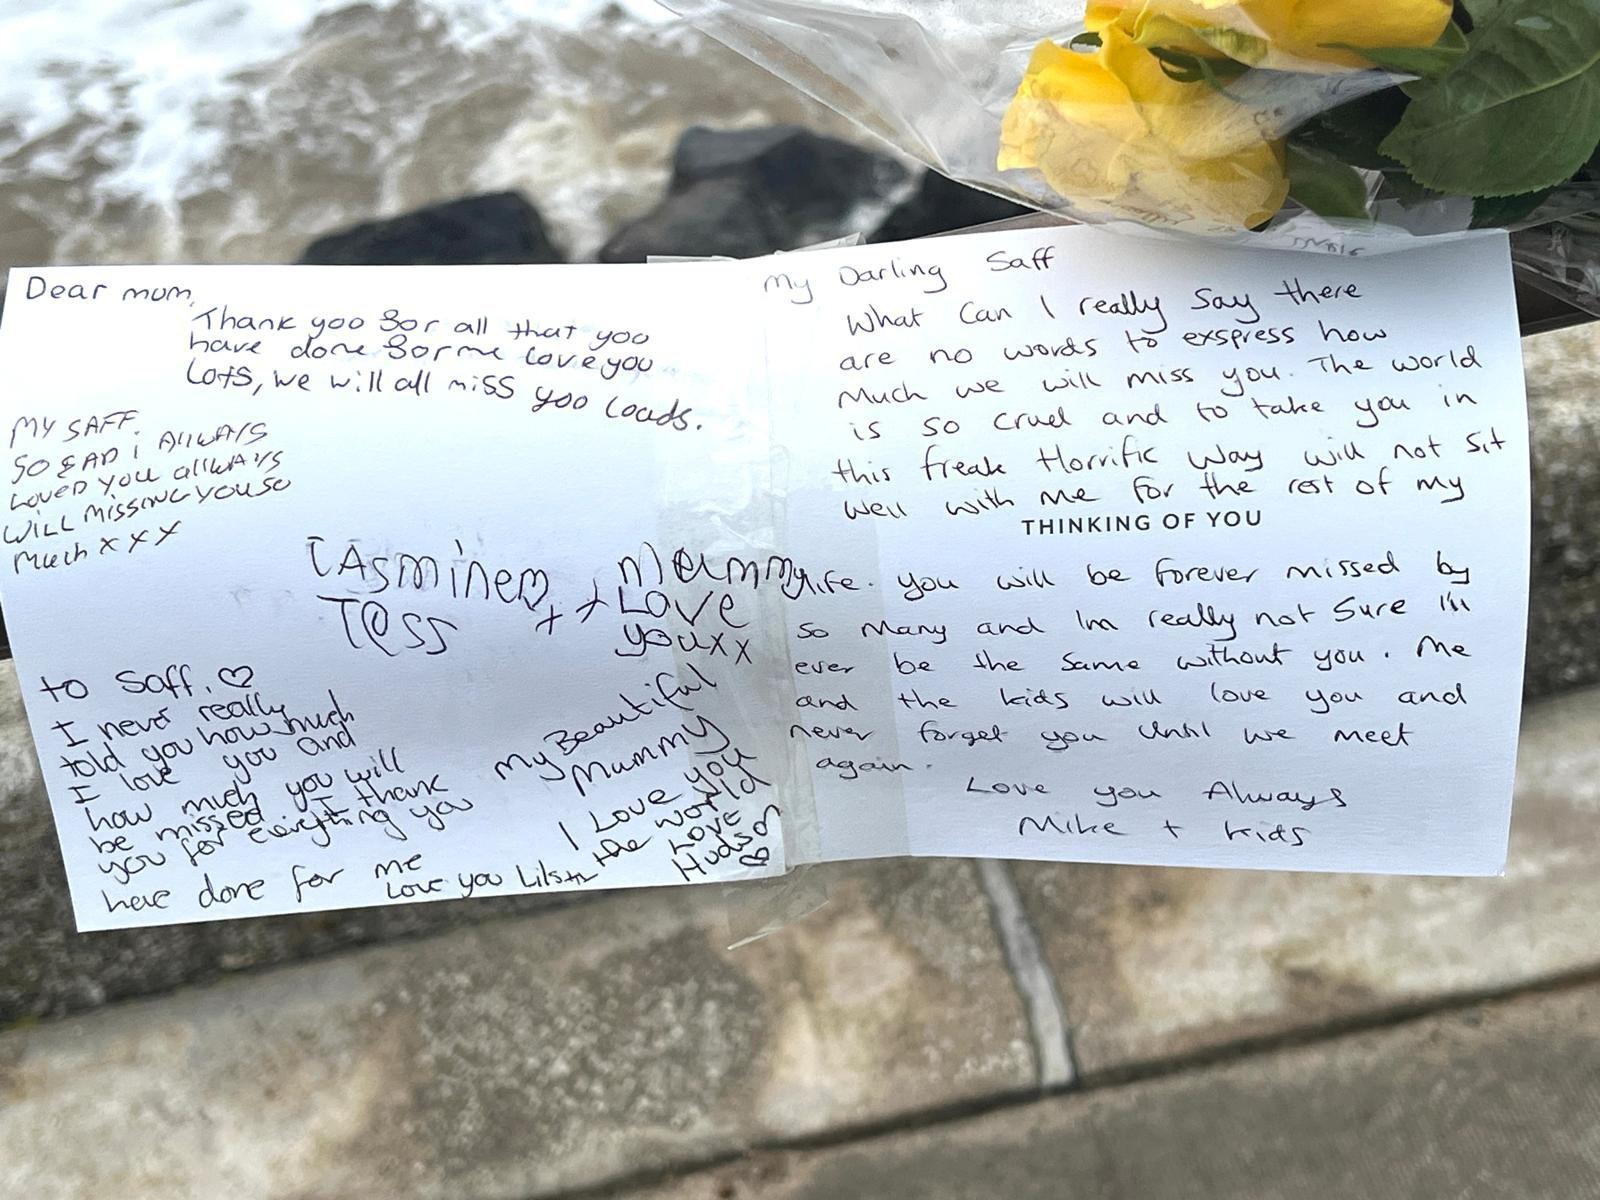 Dear mum,
Thank yoo for all that yoo
have done for me love you
Lots, we will all miss yoo loads.
MY SAFF.
SO SAD i AllwAYS
LOVED YOU allwAYS
WILL missiNG YOU SO
Much x x x
Tess
Mummy
Love
youxx
to Saff. ♡
I never really
told you how much
I love you and
how much you will
be missed I thank
you for everything you
have done for me
Love you
My Beautiful
Mummy
I Love you
the world
Love
Hudson
♡
My Darling Saff
What Can I really Say there
are no words to exspress how
Much we will miss you. The world
is so cruel and to take you in
this freak Horrific Way will not sit
well with me for the rest of my
THINKING OF YOU
life. you will be forever missed by
so many and Im really not Sure I'll
ever be the same without you. Me
and the kids will love you and
never forget you Until we meet
again.
Love you Always
Mike + kids